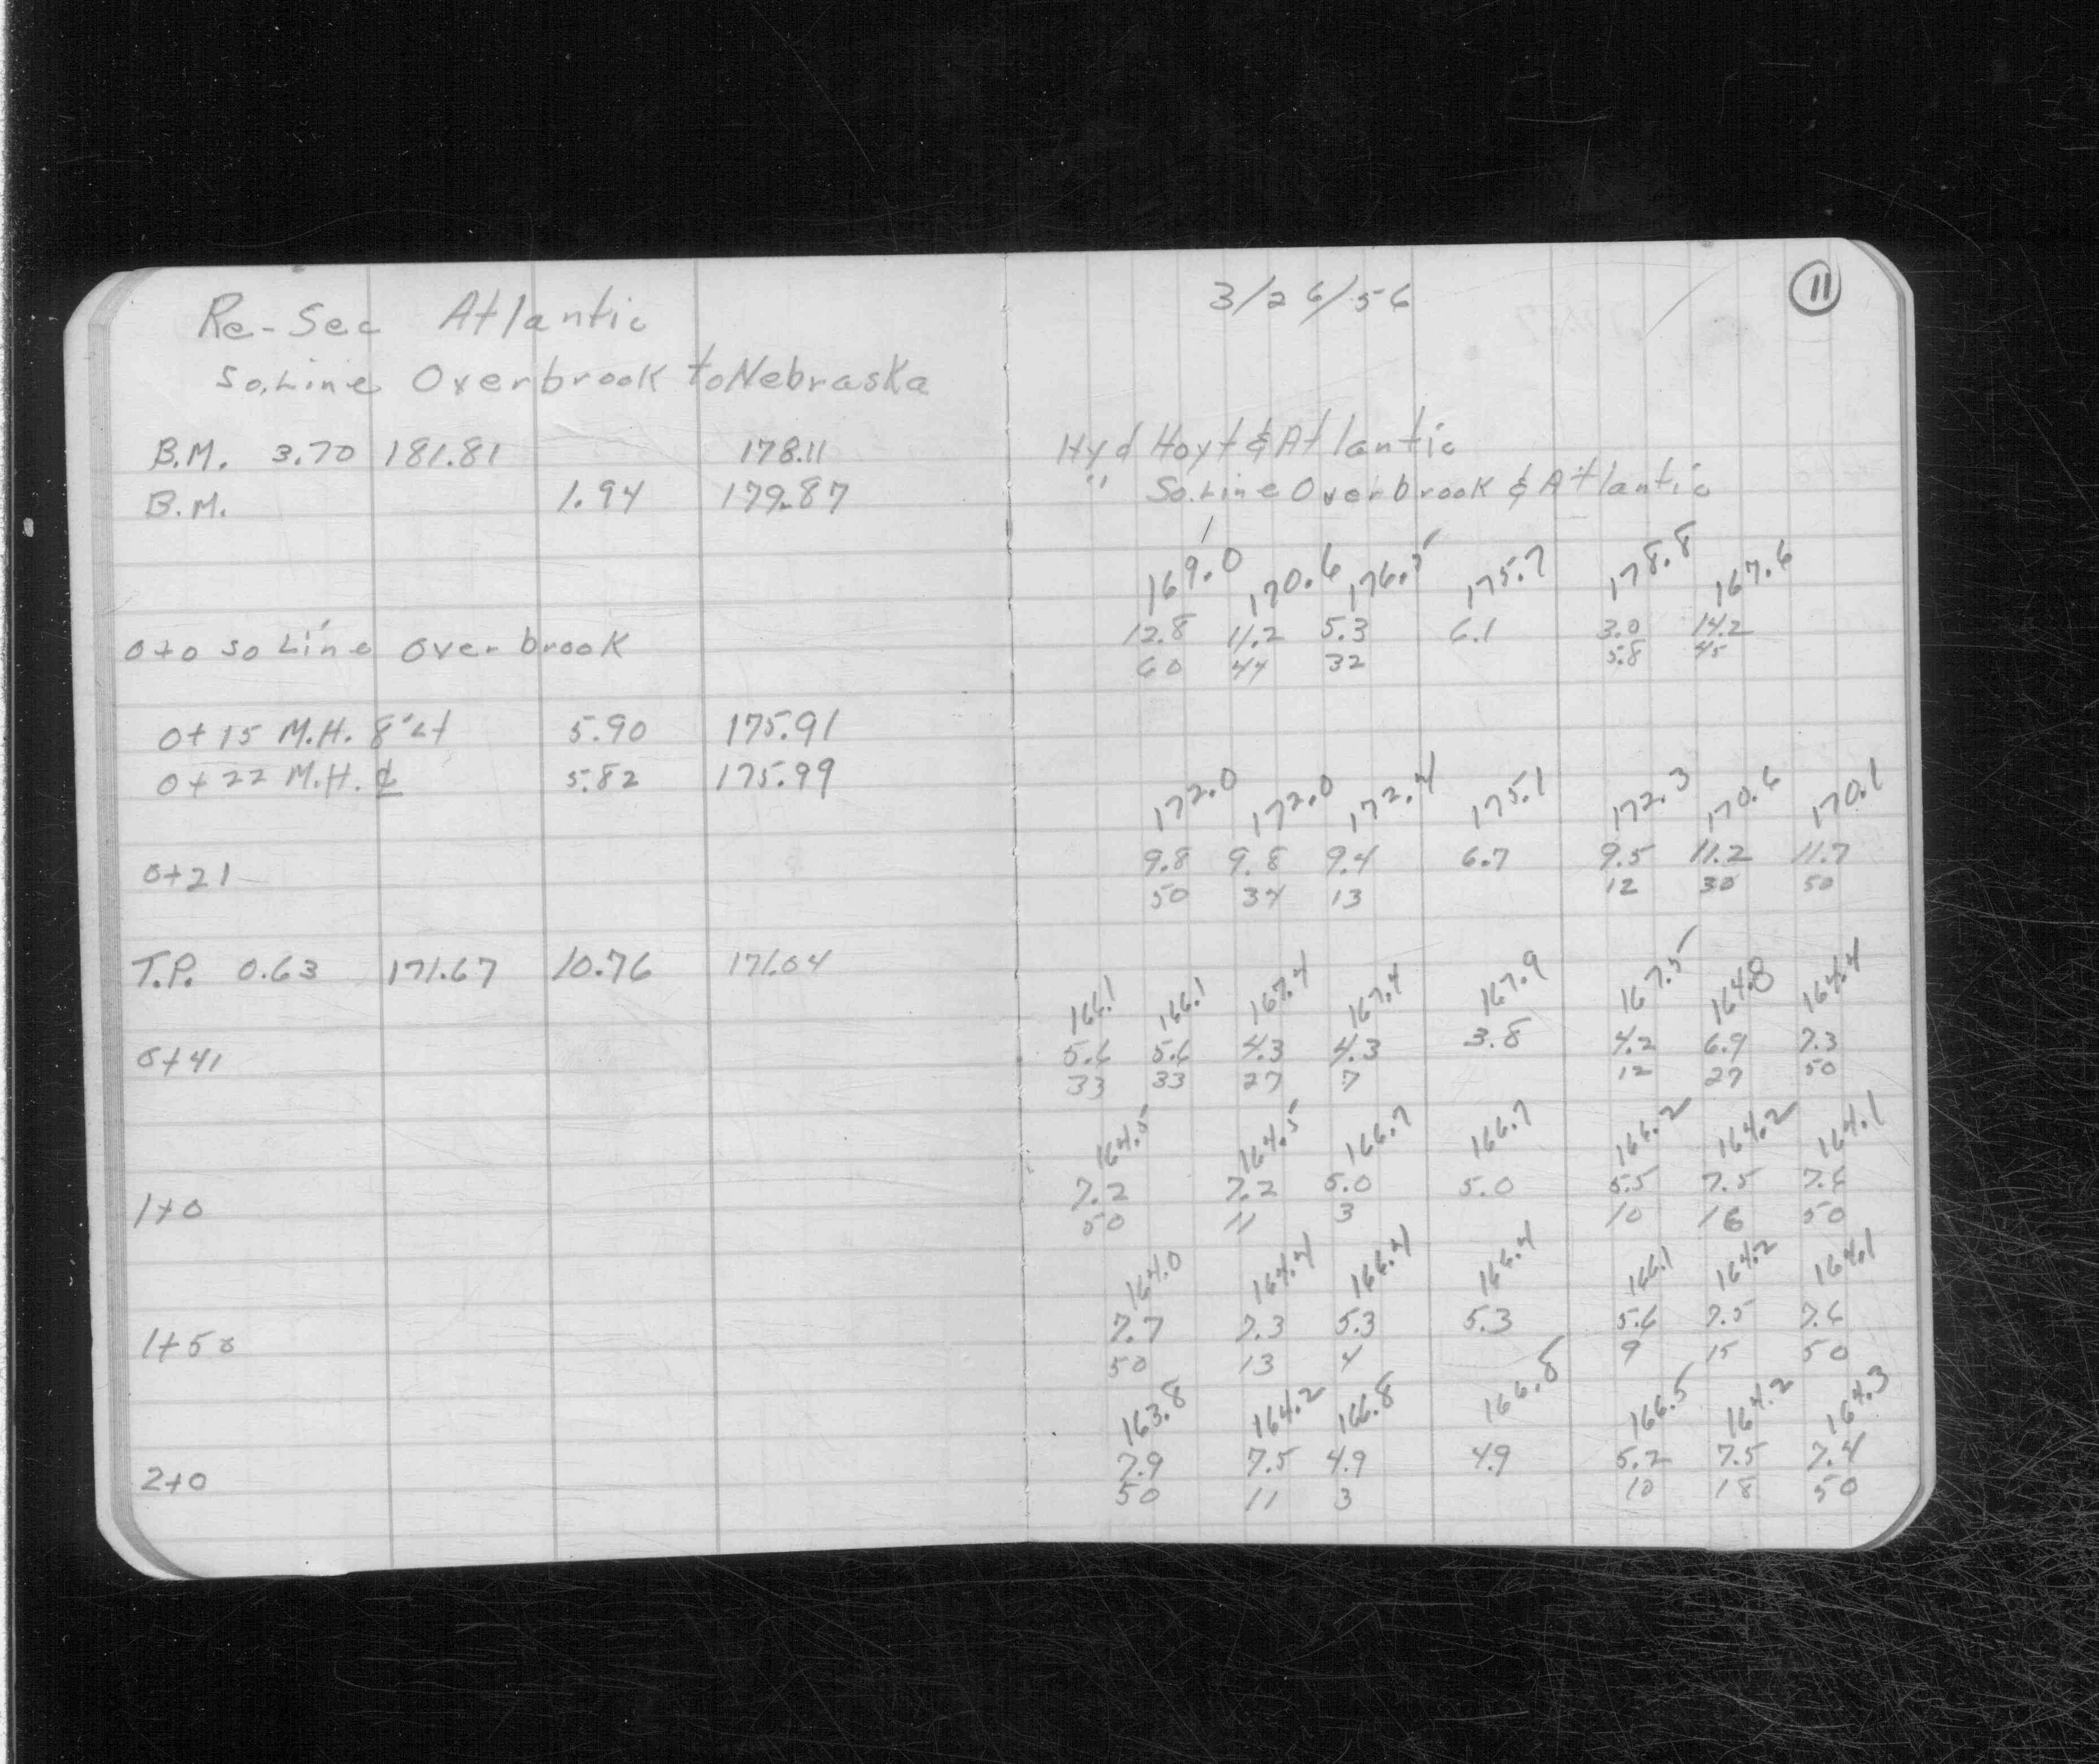 Re-Sec Atlantic
So. Line Overbrook to Nebraska
B.M. 3.70 181.81 178.11
B.M. 1.94 179.87
0+0 So Line Overbrook
0+15 M.H. 8' Lt 5.90 175.91
0+22 M.H. ℄ 5.82 175.99
0+21
T.P. 0.63 171.67 10.76 171.04
0+41
1+0
1+50
2+0
3/26/56
11
Hyd Hoyt & Atlantic
" So. Line Overbrook & Atlantic
169.0 170.6 176.5 175.7 178.8 167.6
12.8 11.2 5.3 6.1 3.0 14.2
60 44 32 5.8 45
172.0 172.0 172.4 175.1 172.3 170.6 170.1
9.8 9.8 9.4 6.7 9.5 11.2 11.7
50 34 13 12 30 50
166.1 166.1 167.4 167.4 167.9 167.5 164.8 164.4
5.6 5.6 4.3 4.3 3.8 4.2 6.9 7.3
33 33 27 7 12 27 50
164.5 164.5 166.7 166.7 166.2 164.2 164.1
7.2 7.2 5.0 5.0 5.5 7.5 7.6
50 11 3 10 18 50
164.0 164.4 166.4 166.4 166.1 164.2 164.1
7.7 7.3 5.3 5.3 5.6 7.5 7.6
50 13 4 9 15 50
163.8 164.2 166.8 166.8 166.5 164.2 164.3
7.9 7.5 4.9 4.9 5.2 7.5 7.4
50 11 3 10 18 50